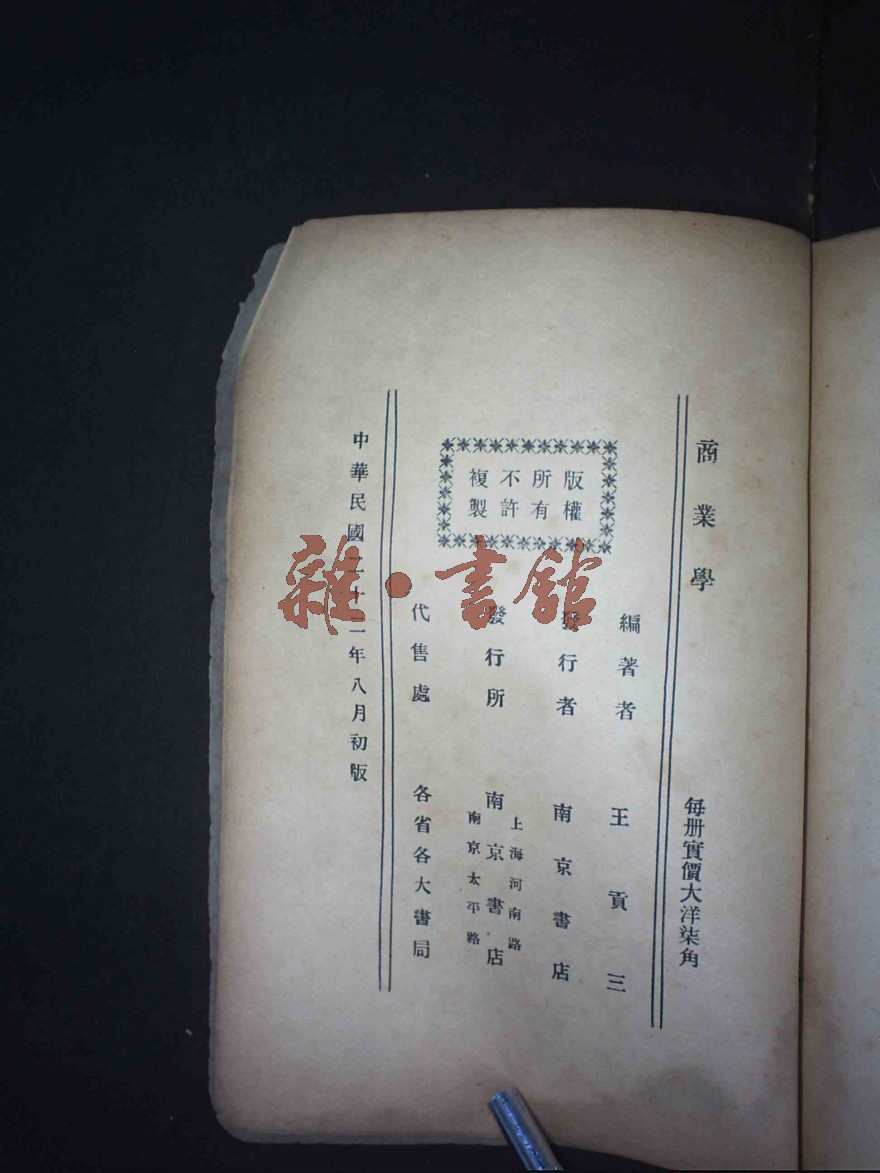 商業學
每册實價大洋柒角
版權
所有
不許
複製
編著者 王貢三
發行者 南京書店
上海河南路
發行所 南京書店
南京太平路
代售處 各省各大書局
中華民國二十二年八月初版
雜·書館